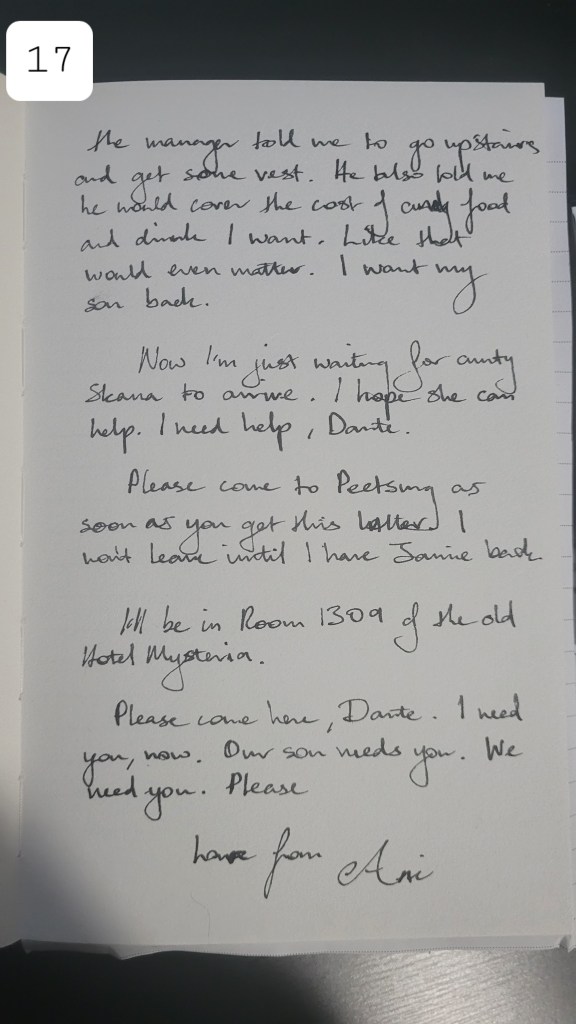 17
the manager told me to go upstairs
and get some rest. He also told me
he would cover the cost of any food
and drink I want. Like that
would even matter. I want my
son back.
Now I'm just waiting for aunty
Skana to arrive. I hope she can
help. I need help, Dante.
Please come to Peetsung as
soon as you get this letter. I
won't leave until I have Jamie back.
I'll be in Room 1309 of the old
Hotel Mysteria.
Please come here, Dante. I need
you, now. Our son needs you. We
need you. Please
love from Ani